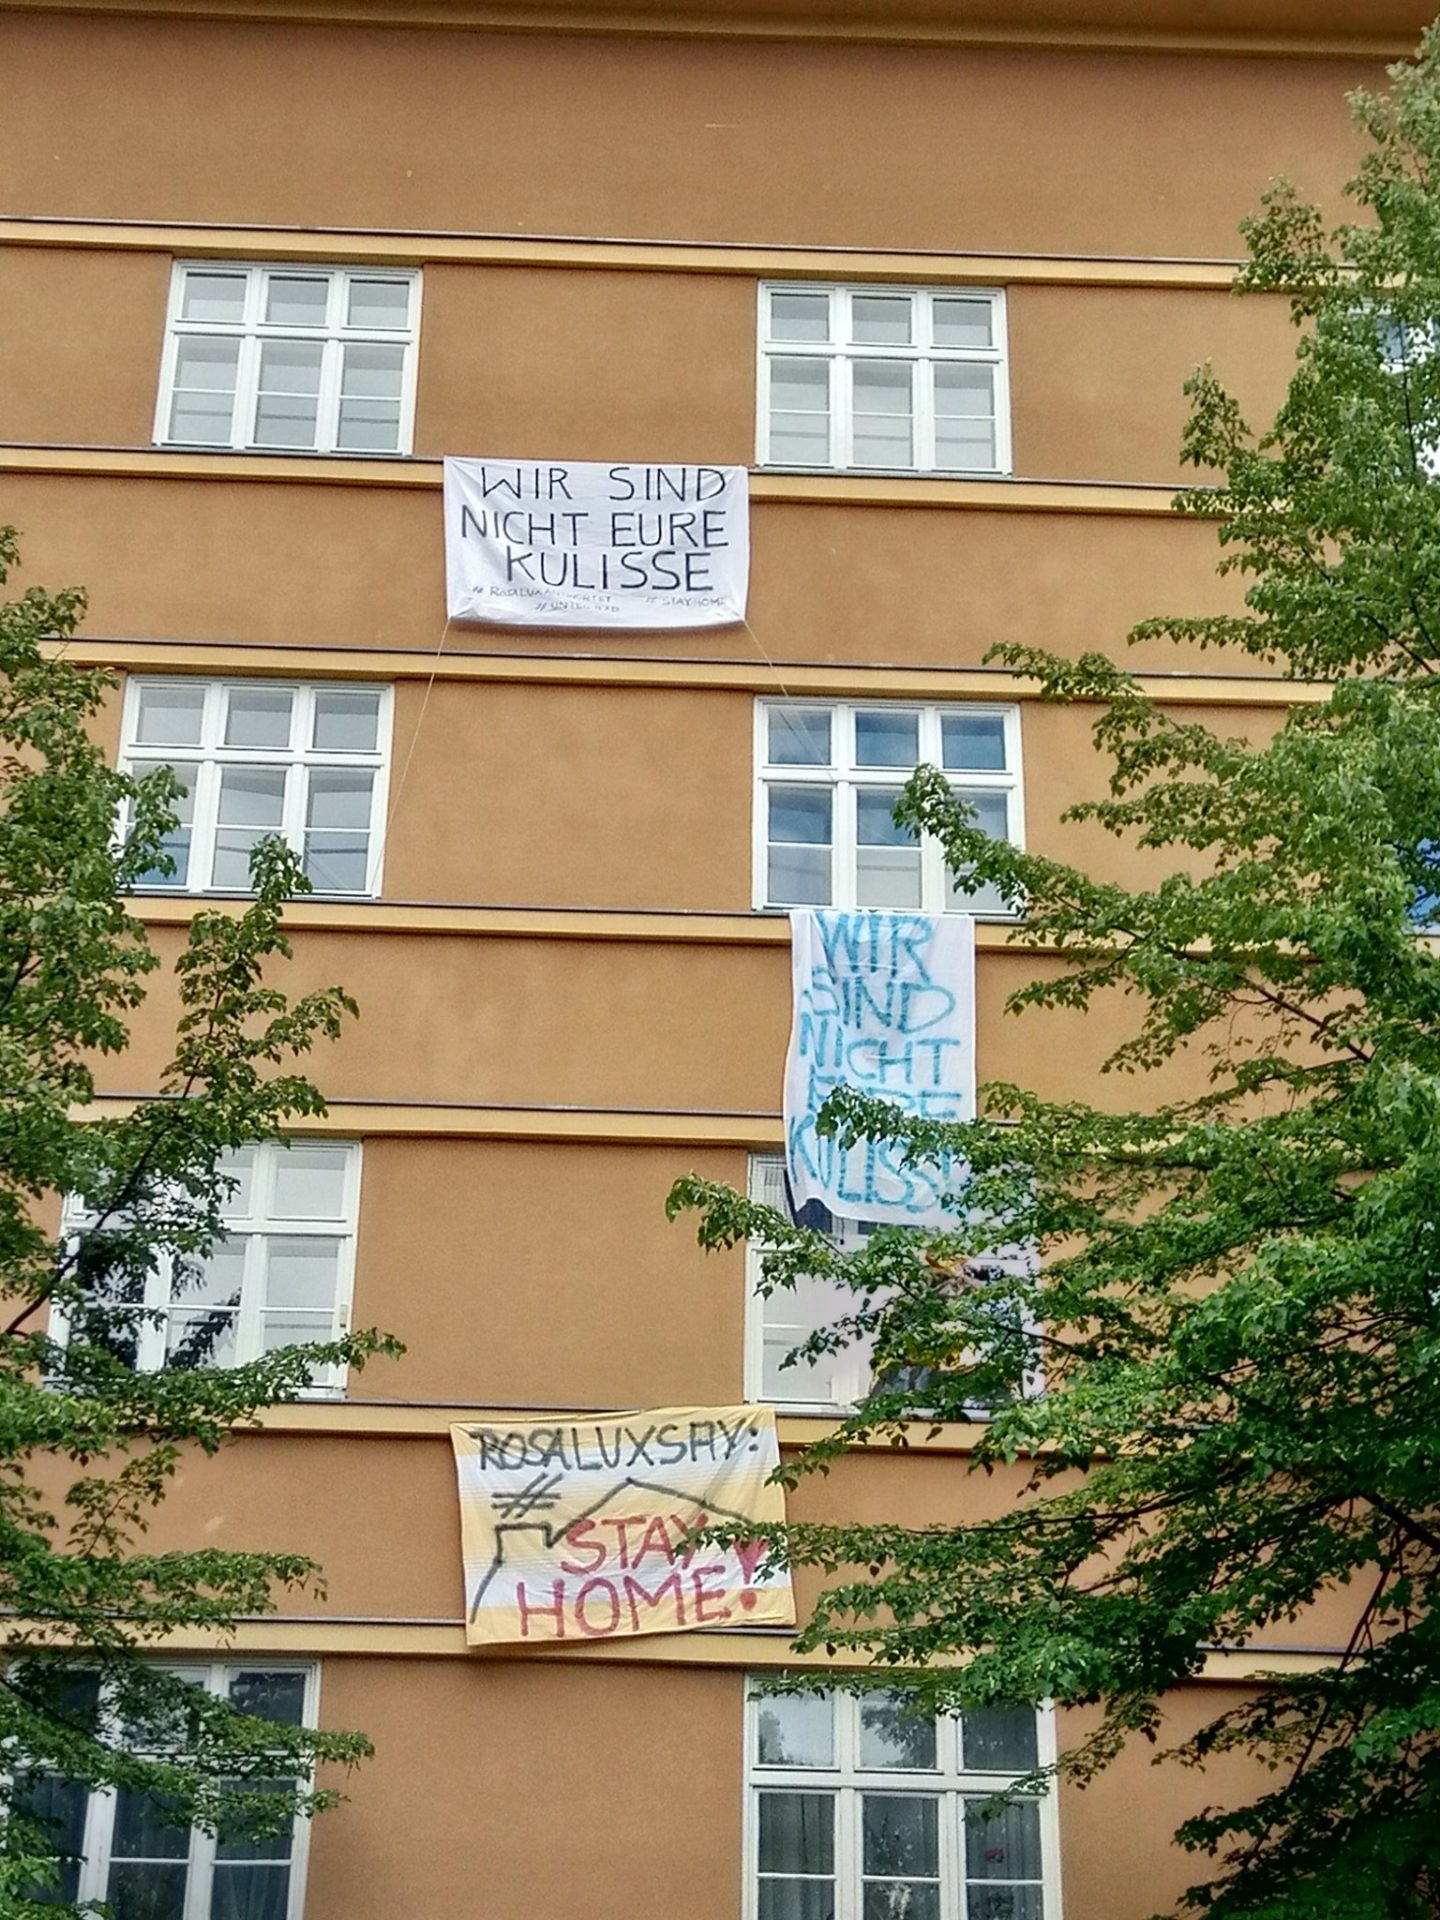 WIR SIND
NICHT EURE
KULISSE
# ROSALUXANTWORTET
# STAYHOME
WIR
SIND
NICHT
EURE
KULISSE
ROSALUXSAY:
#
STAY
HOME!